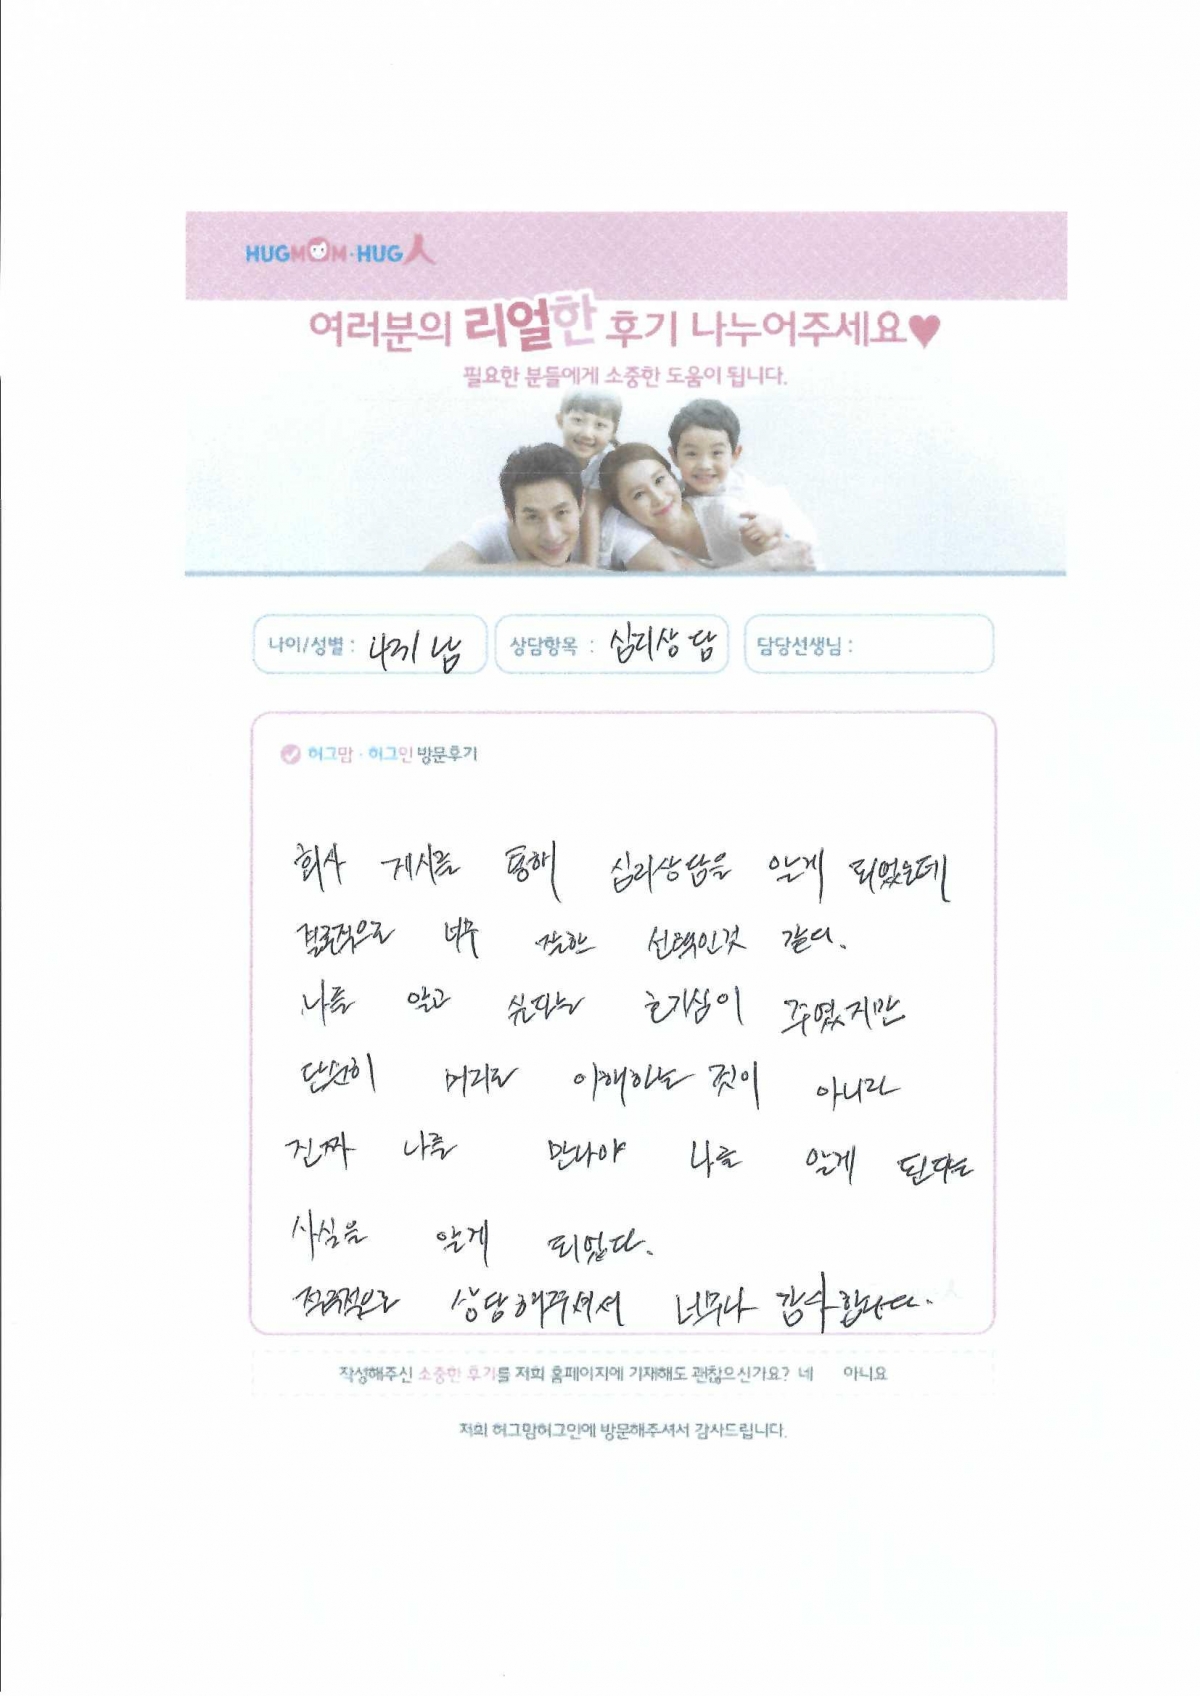 HUGMOM·HUG人
여러분의 리얼한 후기 나누어주세요♥
필요한 분들에게 소중한 도움이 됩니다.
나이/성별 : 남 상담항목 : 심리상담 담당선생님 :
허그맘·허그인 방문후기
회사 게시를 통해 심리상담을 알게 되었는데
결론적으로 너무 잘한 선택인것 같다.
나를 알고 싶다는 호기심이 주였지만
단순히 머리로 이해하는 것이 아니라
진짜 나를 만나야 나를 알게 된다는
사실을 알게 되었다.
적극적으로 상담해주셔서 너무나 감사합니다.
작성해주신 소중한 후기를 저희 홈페이지에 기재해도 괜찮으신가요? 네 아니요
저희 허그맘허그인에 방문해주셔서 감사드립니다.